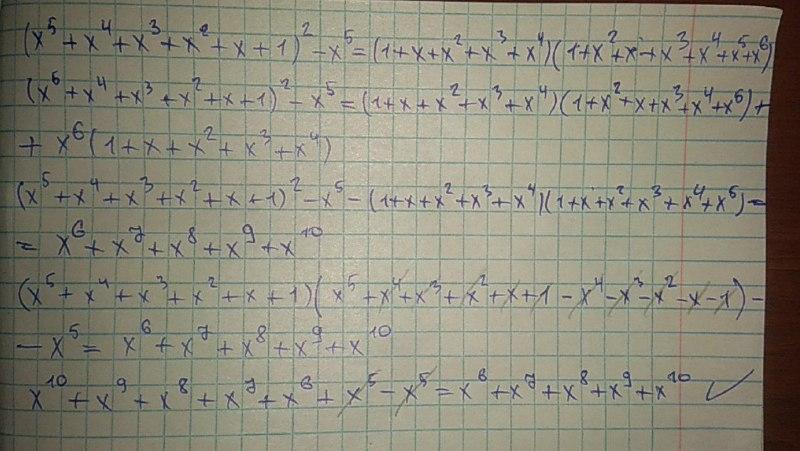 (x⁵ + x⁴ + x³ + x² + x + 1)² - x⁵ = (1 + x + x² + x³ + x⁴)(1 + x² + x + x³ + x⁴ + x⁵ + x⁶)
(x⁶ + x⁴ + x³ + x² + x + 1)² - x⁵ = (1 + x + x² + x³ + x⁴)(1 + x² + x + x³ + x⁴ + x⁶) +
+ x⁶(1 + x + x² + x³ + x⁴)
(x⁵ + x⁴ + x³ + x² + x + 1)² - x⁵ - (1 + x + x² + x³ + x⁴)(1 + x + x² + x³ + x⁴ + x⁵) =
= x⁶ + x⁷ + x⁸ + x⁹ + x¹⁰
(x⁵ + x⁴ + x³ + x² + x + 1)(x⁵ + x⁴ + x³ + x² + x + 1 - x⁴ - x³ - x² - x - 1) -
- x⁵ = x⁶ + x⁷ + x⁸ + x⁹ + x¹⁰
x¹⁰ + x⁹ + x⁸ + x⁷ + x⁶ + x⁵ - x⁵ = x⁶ + x⁷ + x⁸ + x⁹ + x¹⁰ ✓